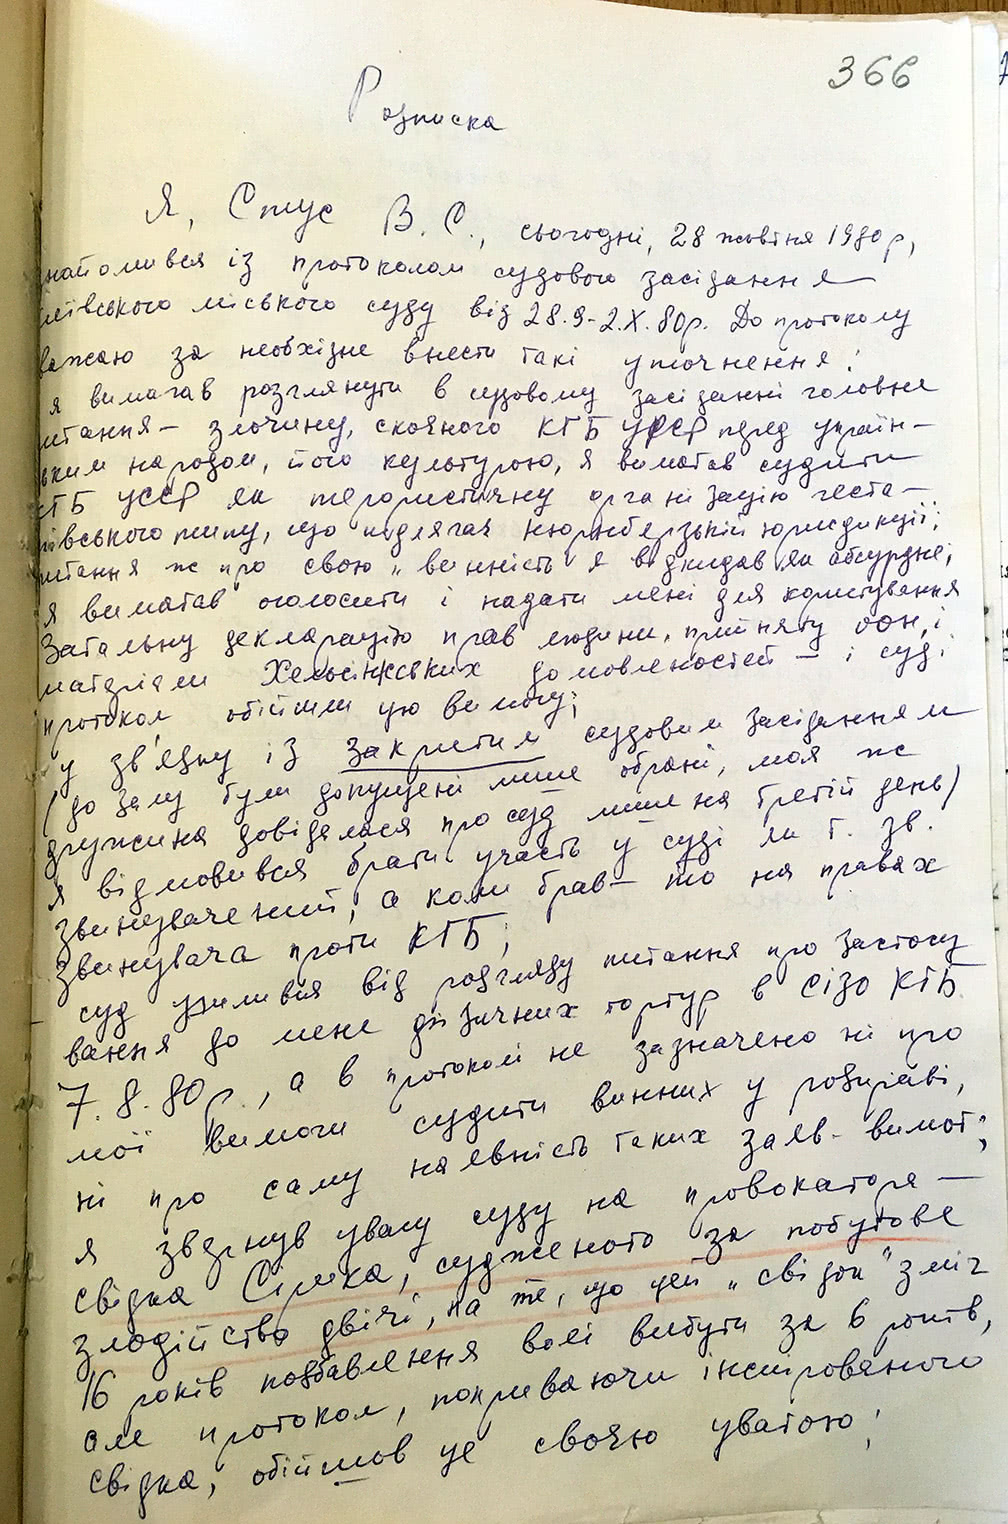 366
Розписка
Я, Стус В. С., сьогодні, 28 жовтня 1980 р,
найомився із протоколом судового засідання
иївського міського суду від 28.9-2.X.80р. До протоколу
важаю за необхідне внести такі уточнення:
я вимагав розглянути в судовому засіданні головне
итання – злочину, скоєного КГБ УРСР перед україн-
ським народом, його культурою, я вимагав судити
КГБ УССР як терористичну організацію геста-
півського типу, що підлягає нюрнберзькій юрисдикції;
питання ж про свою „винність я відкидав як абсурдне;
я вимагав оголосити і надати мені для користування
Загальну декларацію прав людини, прийняту ООН, і
матеріали Хельсінкських домовленостей – і суд і
протокол обійшли цю вимогу;
у зв'язку із закритим судовим засіданням
(до залу були допущені лише обрані, моя ж
дружина довідалася про суд лише на третій день)
я відмовився брати участь у суді як т. зв.
звинувачений, а коли брав – то на правах
звинувача проти КГБ;
суд ухилився від розгляду питання про застосу
вання до мене фізичних тортур в СІЗО КГБ
7.8.80р., а в протоколі не зазначено ні про
мої вимоги судити винних у розправі,
ні про саму наявність таких заяв-вимог;
я звернув увагу суду на провокатора –
свідка Сірика, судженого за побутове
злодійство двічі, на те, що цей „свідок" зміг
16 років позбавлення волі вибути за 6 років,
але протокол, покриваючи інспірованого
свідка, обійшов це своєю увагою;